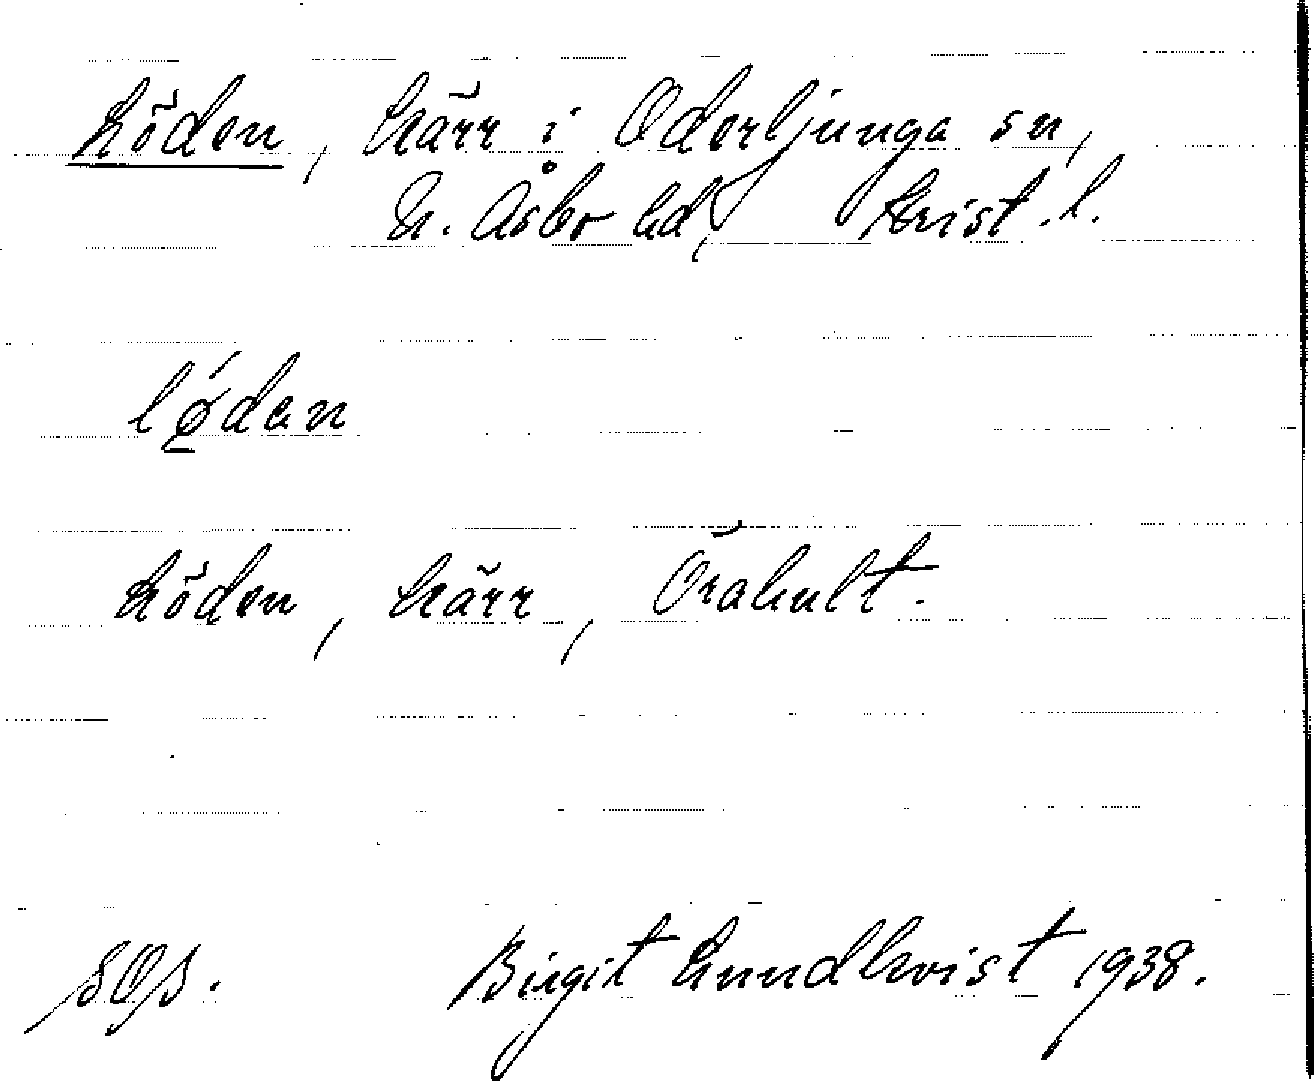 Löden, kärr i Oderljunga sn,
N. Åsbo hd, Krist. l.
lǿ̱dan
Löden, kärr, Örahult.
SOS. Birgit Lundkvist 1938.